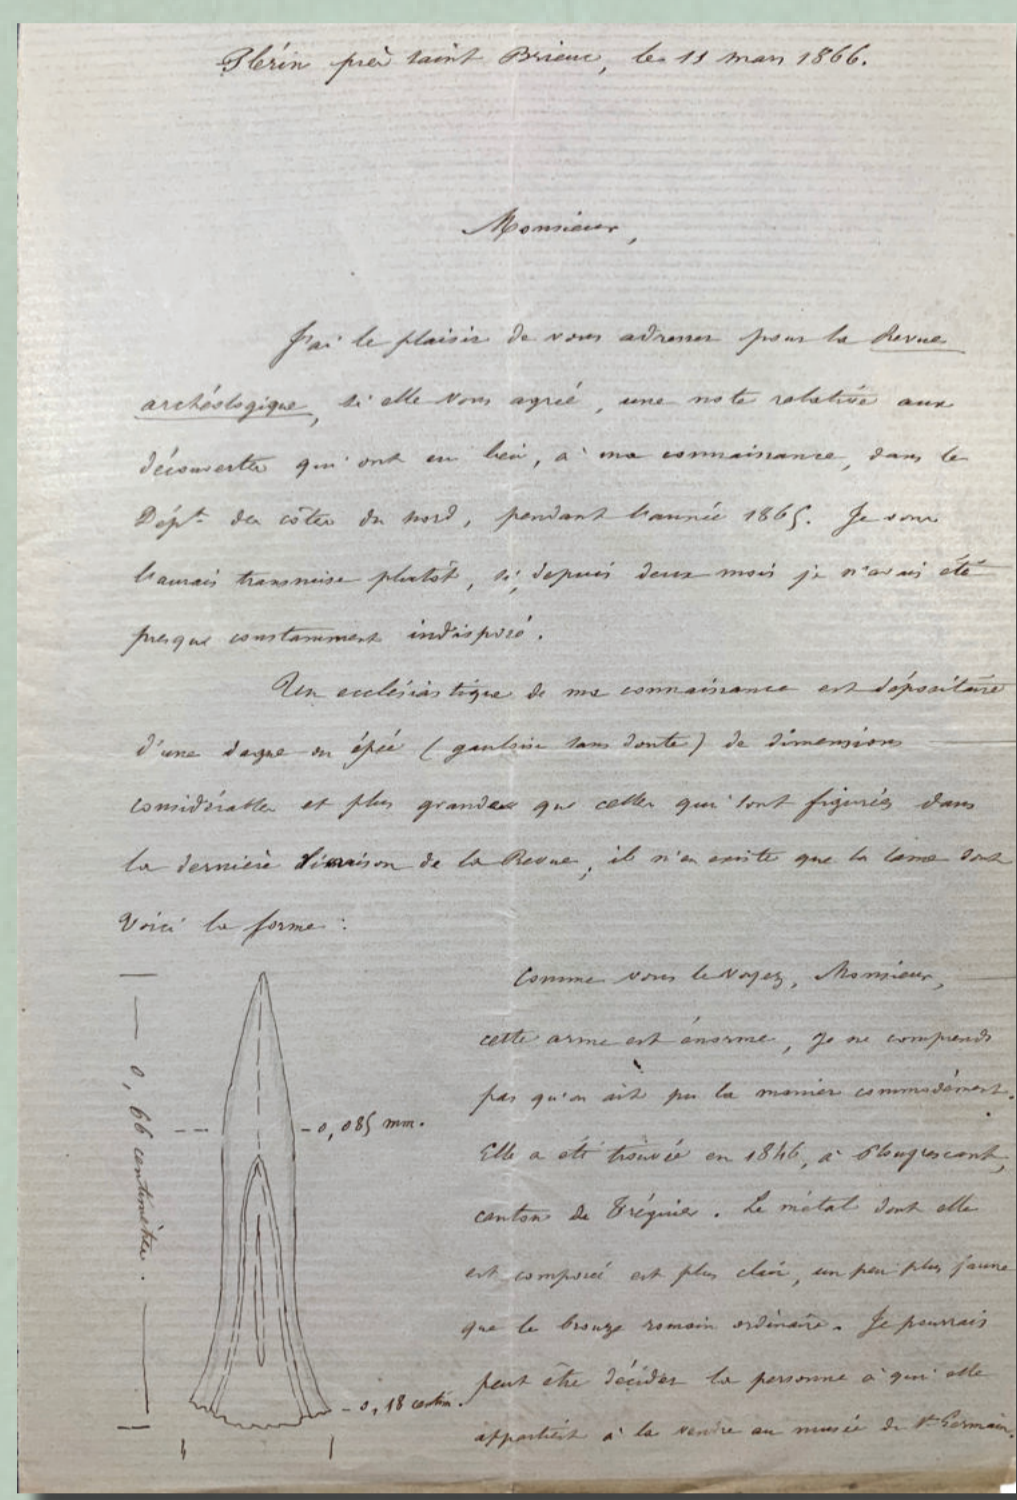 Plérin près saint Brieuc, le 11 mars 1866.
Monsieur,
J'ai le plaisir de vous adresser pour la Revue
archéologique, si elle vous agrée, une note relative aux
découvertes qui ont eu lieu, à ma connaissance, dans le
Dépt. des côtes du nord, pendant l'année 1865. Je vous
l'aurais transmise plutôt, si, depuis deux mois je n'avais été
presque constamment indisposé.
Un ecclésiastique de ma connaissance est dépositaire
d'une dague ou épée (gauloise sans doute) de dimensions
considérables et plus grandes que celles qui sont figurées dans
la dernière livraison de la Revue; il n'en existe que la lame dont
voici la forme :
0,66 centimètres.
0,085 mm.
0,18 centim.
Comme vous le voyez, Monsieur,
cette arme est énorme, je ne comprends
pas qu'on ait pu la manier commodément.
Elle a été trouvée en 1846, à Plougrescant,
canton de Tréguier. Le métal dont elle
est composée est plus clair, un peu plus jaune
que le bronze romain ordinaire. Je pourrais
peut être décider la personne à qui elle
appartient à la vendre au musée de St Germain.